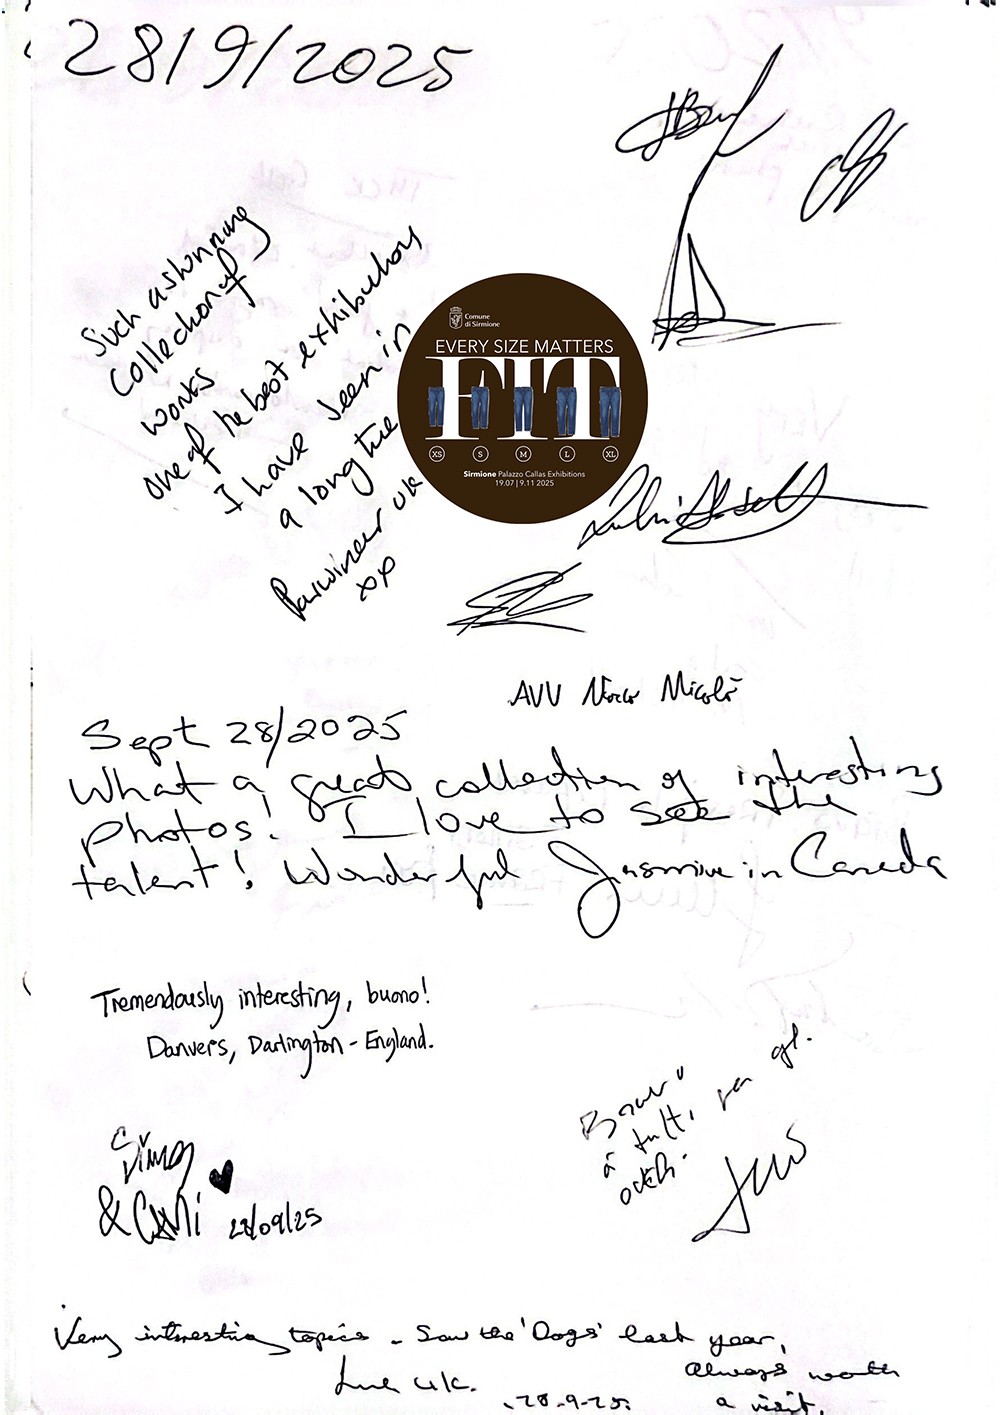 28/9/2025
Such a stunning
collection of
works
one of the best exhibitions
I have seen in
a long time
Parwineur UK
xx
Comune
di Sirmione
EVERY SIZE MATTERS
FIT
XS S M L XL
Sirmione Palazzo Callas Exhibitions
19.07 | 9.11 2025
AVV Nicolò
Sept 28/2025
What a great collection of interesting
photos! I love to see the
talent! Wonderful Jasmine in Canada
Tremendously interesting, buono!
Danvers, Darlington - England.
&
28/09/25
a tutti, per gl.
occhi
Very interesting topics - Saw the 'Dogs' last year,
Always worth
a visit.
UK.
28-9-25.